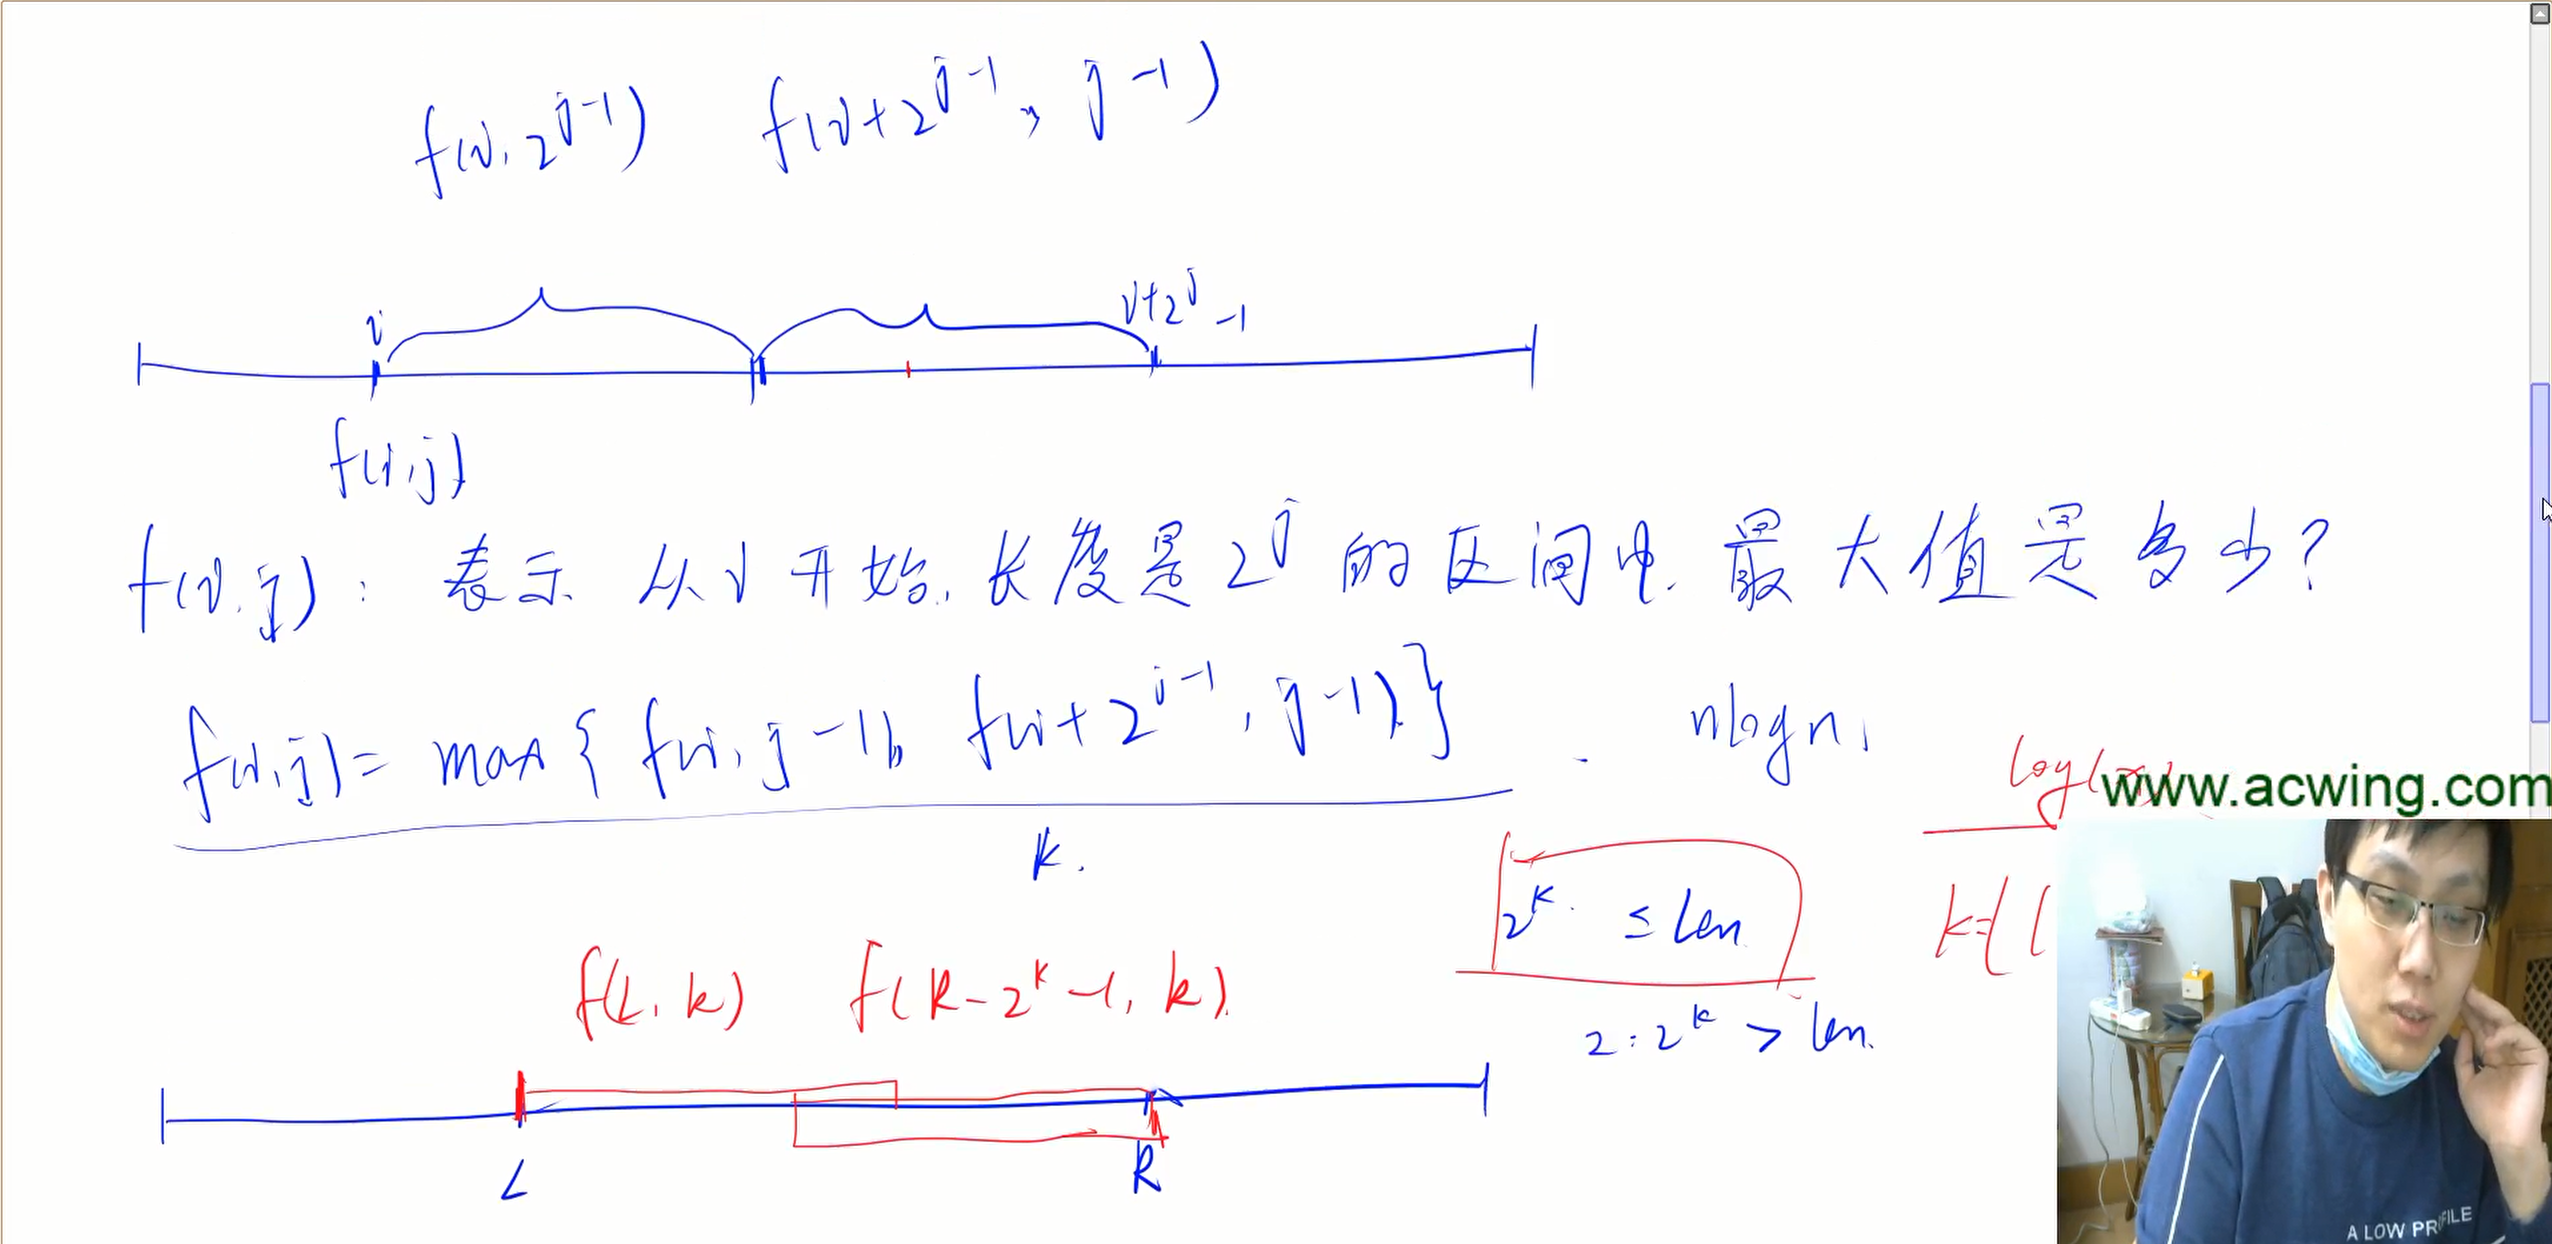 f(i, 2^{j-1}) f(i+2^{j-1}, j-1)
i i+2^j-1
f(i,j)
f(i,j): 表示 从i开始, 长度是2^j的区间中, 最大值是多少?
f(i,j)= max{ f(i, j-1), f(i+2^{j-1}, j-1)} . nlogn,
www.acwing.com
k.
2^k. ≤ len
k=
f(L, k) f(R-2^k-1, k).
2·2^k > len.
L R
A LOW PROFILE